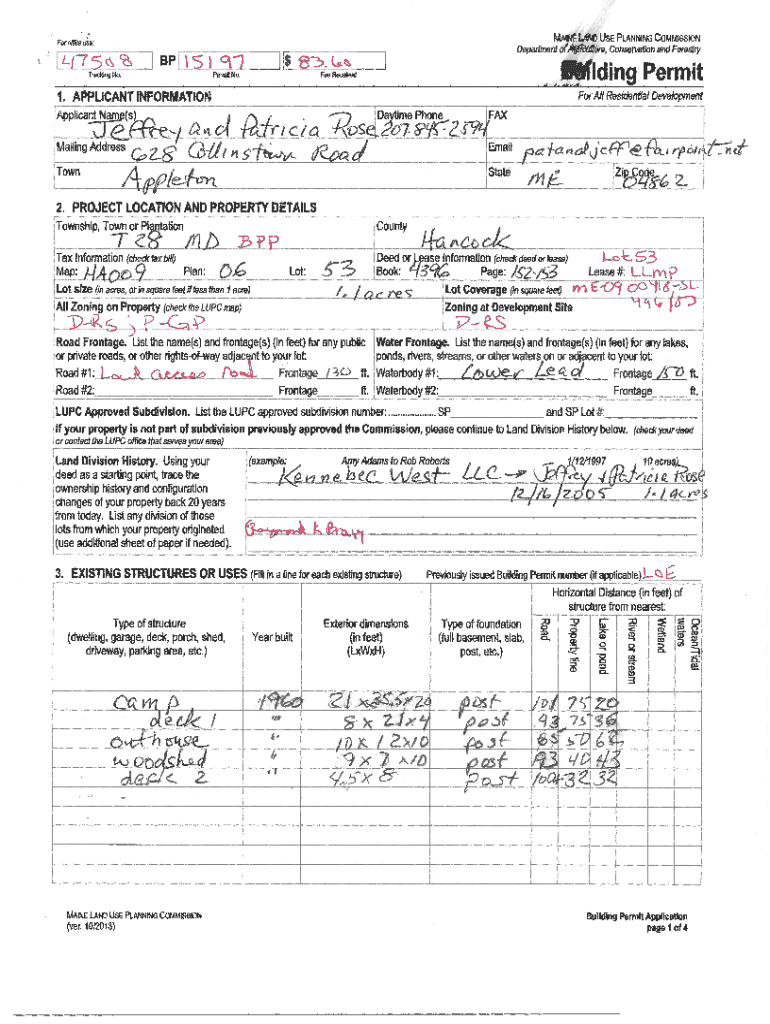 For office use:
47508 BP 15197 $ 83.60
Tracking No. Permit No. Fee Received
MAINE LAND USE PLANNING COMMISSION
Department of Agriculture, Conservation and Forestry
Building Permit
1. APPLICANT INFORMATION For All Residential Development
Applicant Name(s) Jeffrey and Patricia Rose Daytime Phone 207-845-2594 FAX
Mailing Address 628 Collinstown Road Email patandjeff@fairpoint.net
Town Appleton State ME Zip Code 04862
2. PROJECT LOCATION AND PROPERTY DETAILS
Township, Town or Plantation T28 MD BPP County Hancock
Tax Information (check tax bill) Deed or Lease Information (check deed or lease) Lot 53
Map: HA009 Plan: 06 Lot: 53 Book: 4396 Page: 152-153 Lease #: LLMP
Lot size (in acres, or in square feet if less than 1 acre) 1.1 acres Lot Coverage (in square feet)
All Zoning on Property (check the LUPC map) Zoning at Development Site
D-RS, P-GP D-RS
Road Frontage. List the name(s) and frontage(s) (in feet) for any public Water Frontage. List the name(s) and frontage(s) (in feet) for any lakes,
or private roads, or other rights-of-way adjacent to your lot: ponds, rivers, streams, or other waters on or adjacent to your lot:
Road #1: access road Frontage 130 ft. Waterbody #1: Lower Lead Frontage 150 ft.
Road #2: Frontage ft. Waterbody #2: Frontage ft.
LUPC Approved Subdivision. List the LUPC approved subdivision number: SP and SP Lot #:
If your property is not part of subdivision previously approved the Commission, please continue to Land Division History below. (check your deed
or contact the LUPC office that serves your area)
Land Division History. Using your (example: Amy Adams to Rob Roberts 1/12/1997 10 acres)
deed as a starting point, trace the Kennebec West LLC → Jeffrey & Patricia Rose
ownership history and configuration 12/16/2005 1.1 acres
changes of your property back 20 years
from today. List any division of those
lots from which your property originated
(use additional sheet of paper if needed).
3. EXISTING STRUCTURES OR USES (Fill in a line for each existing structure) Previously issued Building Permit number (if applicable) LOE
Horizontal Distance (in feet) of
structure from nearest:
Type of structure Exterior dimensions Type of foundation
(dwelling, garage, deck, porch, shed, Year built (in feet) (full basement, slab,
driveway, parking area, etc.) (LxWxH) post, etc.)
Road Property line Lake or pond River or stream Wetland Ocean/Tidal waters
camp 1960 21 x 35.5 x 20 post 101 75 20
deck 1 " 8 x 21 x 4 post 93 75 36
outhouse " 10 x 12 x 10 post 65 50 62
woodshed " 9 x 7 x 10 post 93 40 43
deck 2 " 4.5 x 8 post 100+ 32 32
MAINE LAND USE PLANNING COMMISSION Building Permit Application
(ver. 10/2013) page 1 of 4